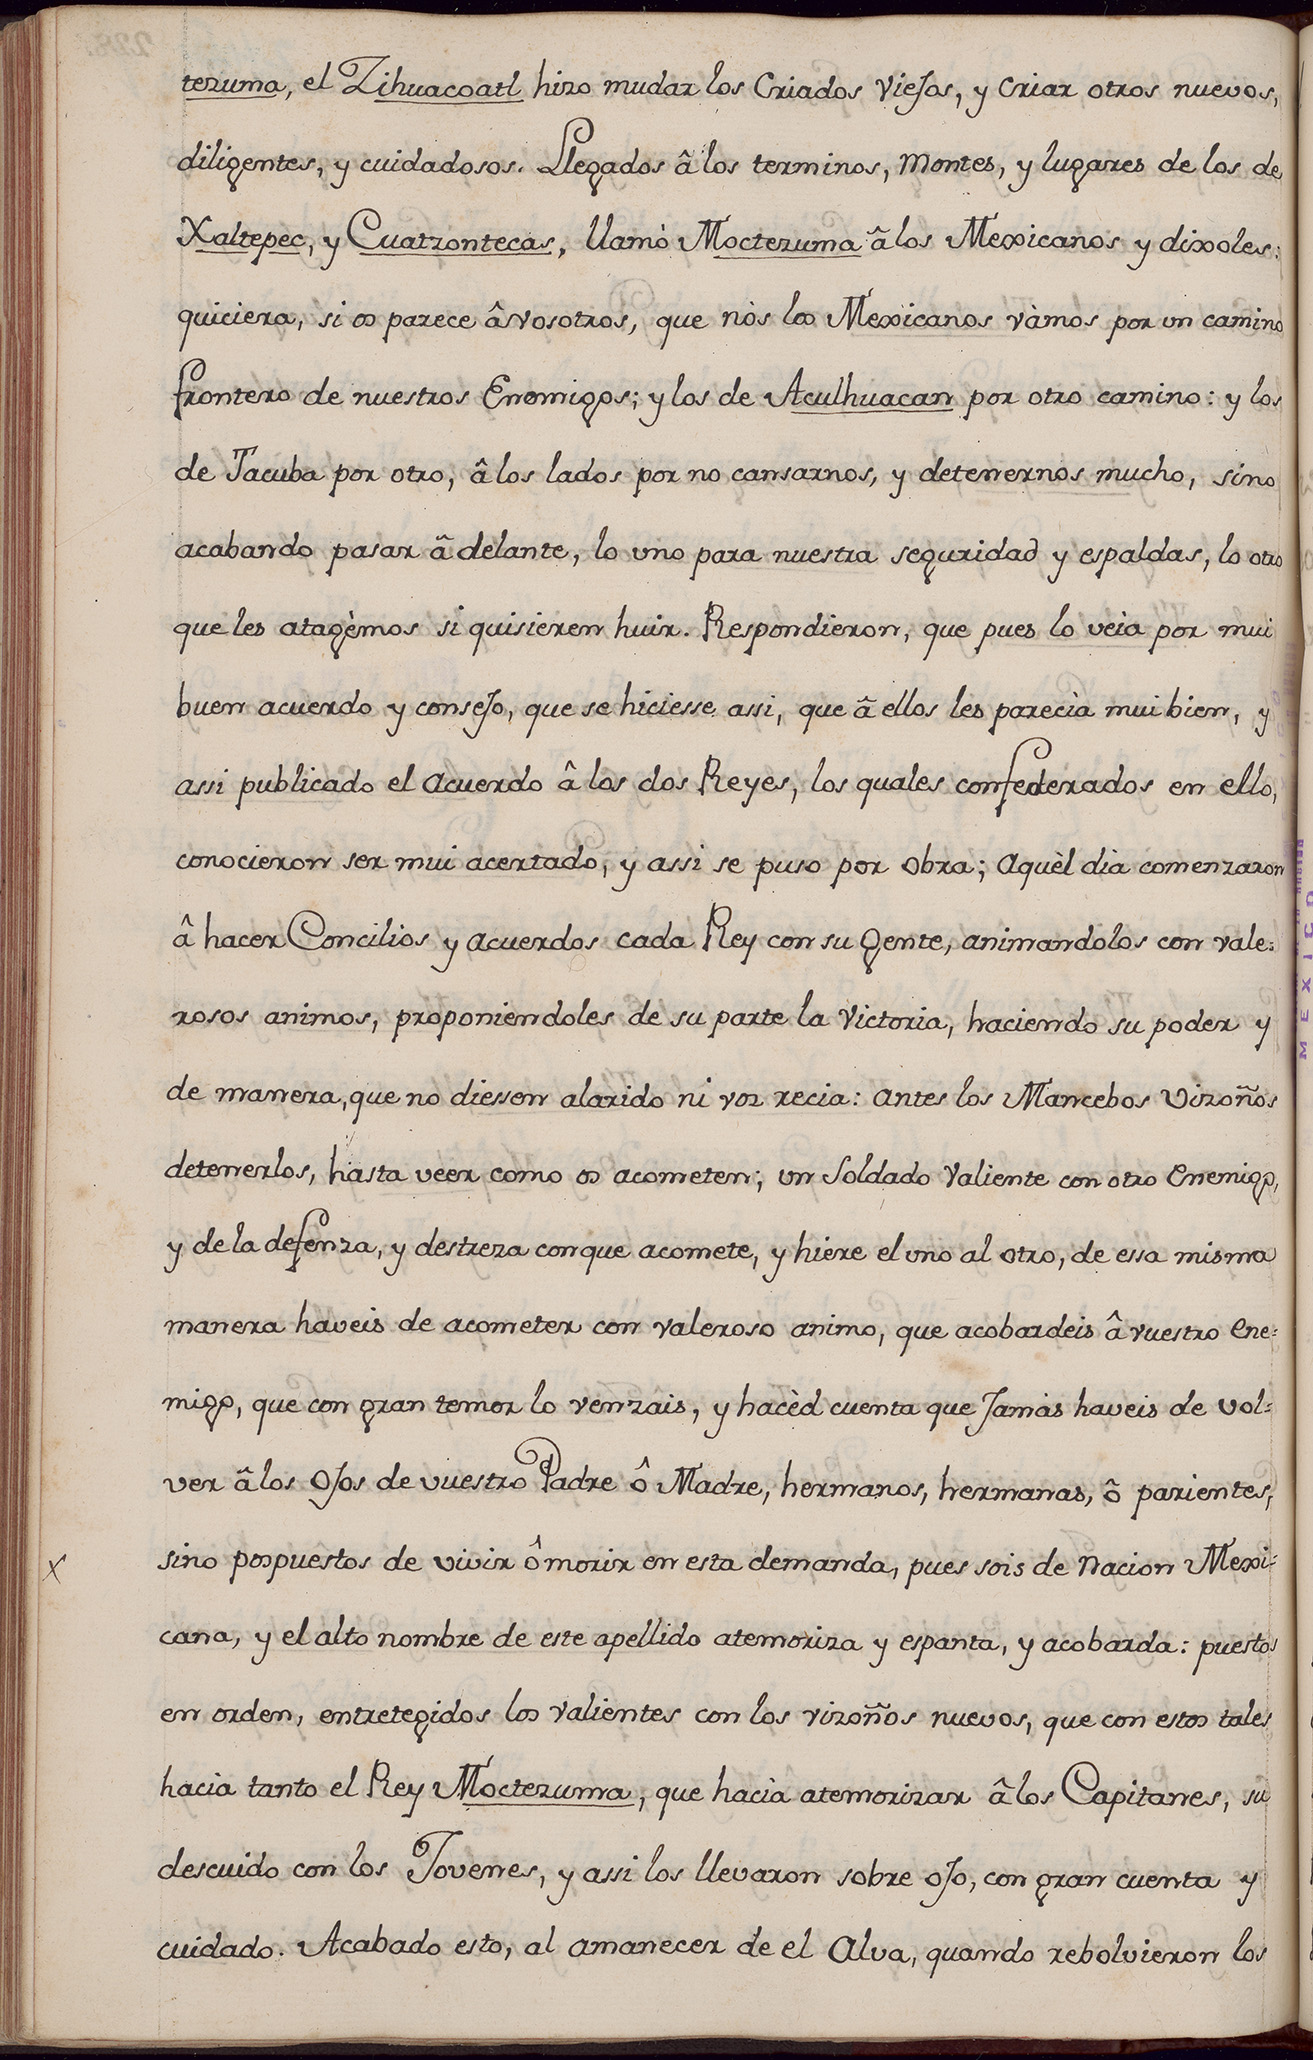 tezuma, el Zihuacoatl hizo mudar los Criados Viejos, y Criar otros nuevos,
diligentes, y cuidadosos. Llegados â los terminos, Montes, y lugares de los de
Xaltepec, y Cuatzontecas, llamò Moctezuma â los Mexicanos y dixoles:
quiciera, si os parece â vosotros, que nòs los Mexicanos vàmos por un camino
frontero de nuestros Enemigos; y los de Aculhuacan por otro camino: y los
de Tacuba por otro, â los lados por no cansarnos, y detenernos mucho, sino
acabando pasar â delante, lo uno para nuestra seguridad y espaldas, lo otro
que les atagèmos si quisieren huir. Respondieron, que pues lo veia por mui
buen acuerdo y consejo, que se hiciesse assi, que â ellos les parecìa mui bien, y
assi publicado el acuerdo â los dos Reyes, los quales confederados en ello,
conocieron ser mui acertado, y assi se puso por obra; Aquèl dia comenzaron
â hacer Concilios y acuerdos cada Rey con su gente, animandolos con vale=
rosos animos, proponiendoles de su parte la Victoria, haciendo su poder y
de manera, que no diessen alarido ni voz recia: antes los Mancebos Vizoños
detenerlos, hasta veer como os acometen; un Soldado Valiente con otro Enemigo,
y de la defenza, y destreza con que acomete, y hiere el uno al otro, de essa misma
manera haveis de acometer con valeroso animo, que acobardeis â vuestro Ene=
migo, que con gran temor lo venzais, y hacèd cuenta que Jamàs haveis de vol=
ver â los Ojos de vuestro Padre ô Madre, hermanos, hermanas, ô parientes,
X sino pospuestos de vivir ô morir en esta demanda, pues sois de Nacion Mexi=
cana, y el alto nombre de este apellido atemoriza y espanta, y acobarda: puestos
en orden, entretegidos los valientes con los vizoños nuevos, que con estos tales
hacia tanto el Rey Moctezuma, que hacìa atemorizar â los Capitanes, su
descuido con los Jovenes, y assi los llevaron sobre ojo, con gran cuenta y
cuidado. Acabado esto, al amanecer de el Alva, quando rebolvieron los